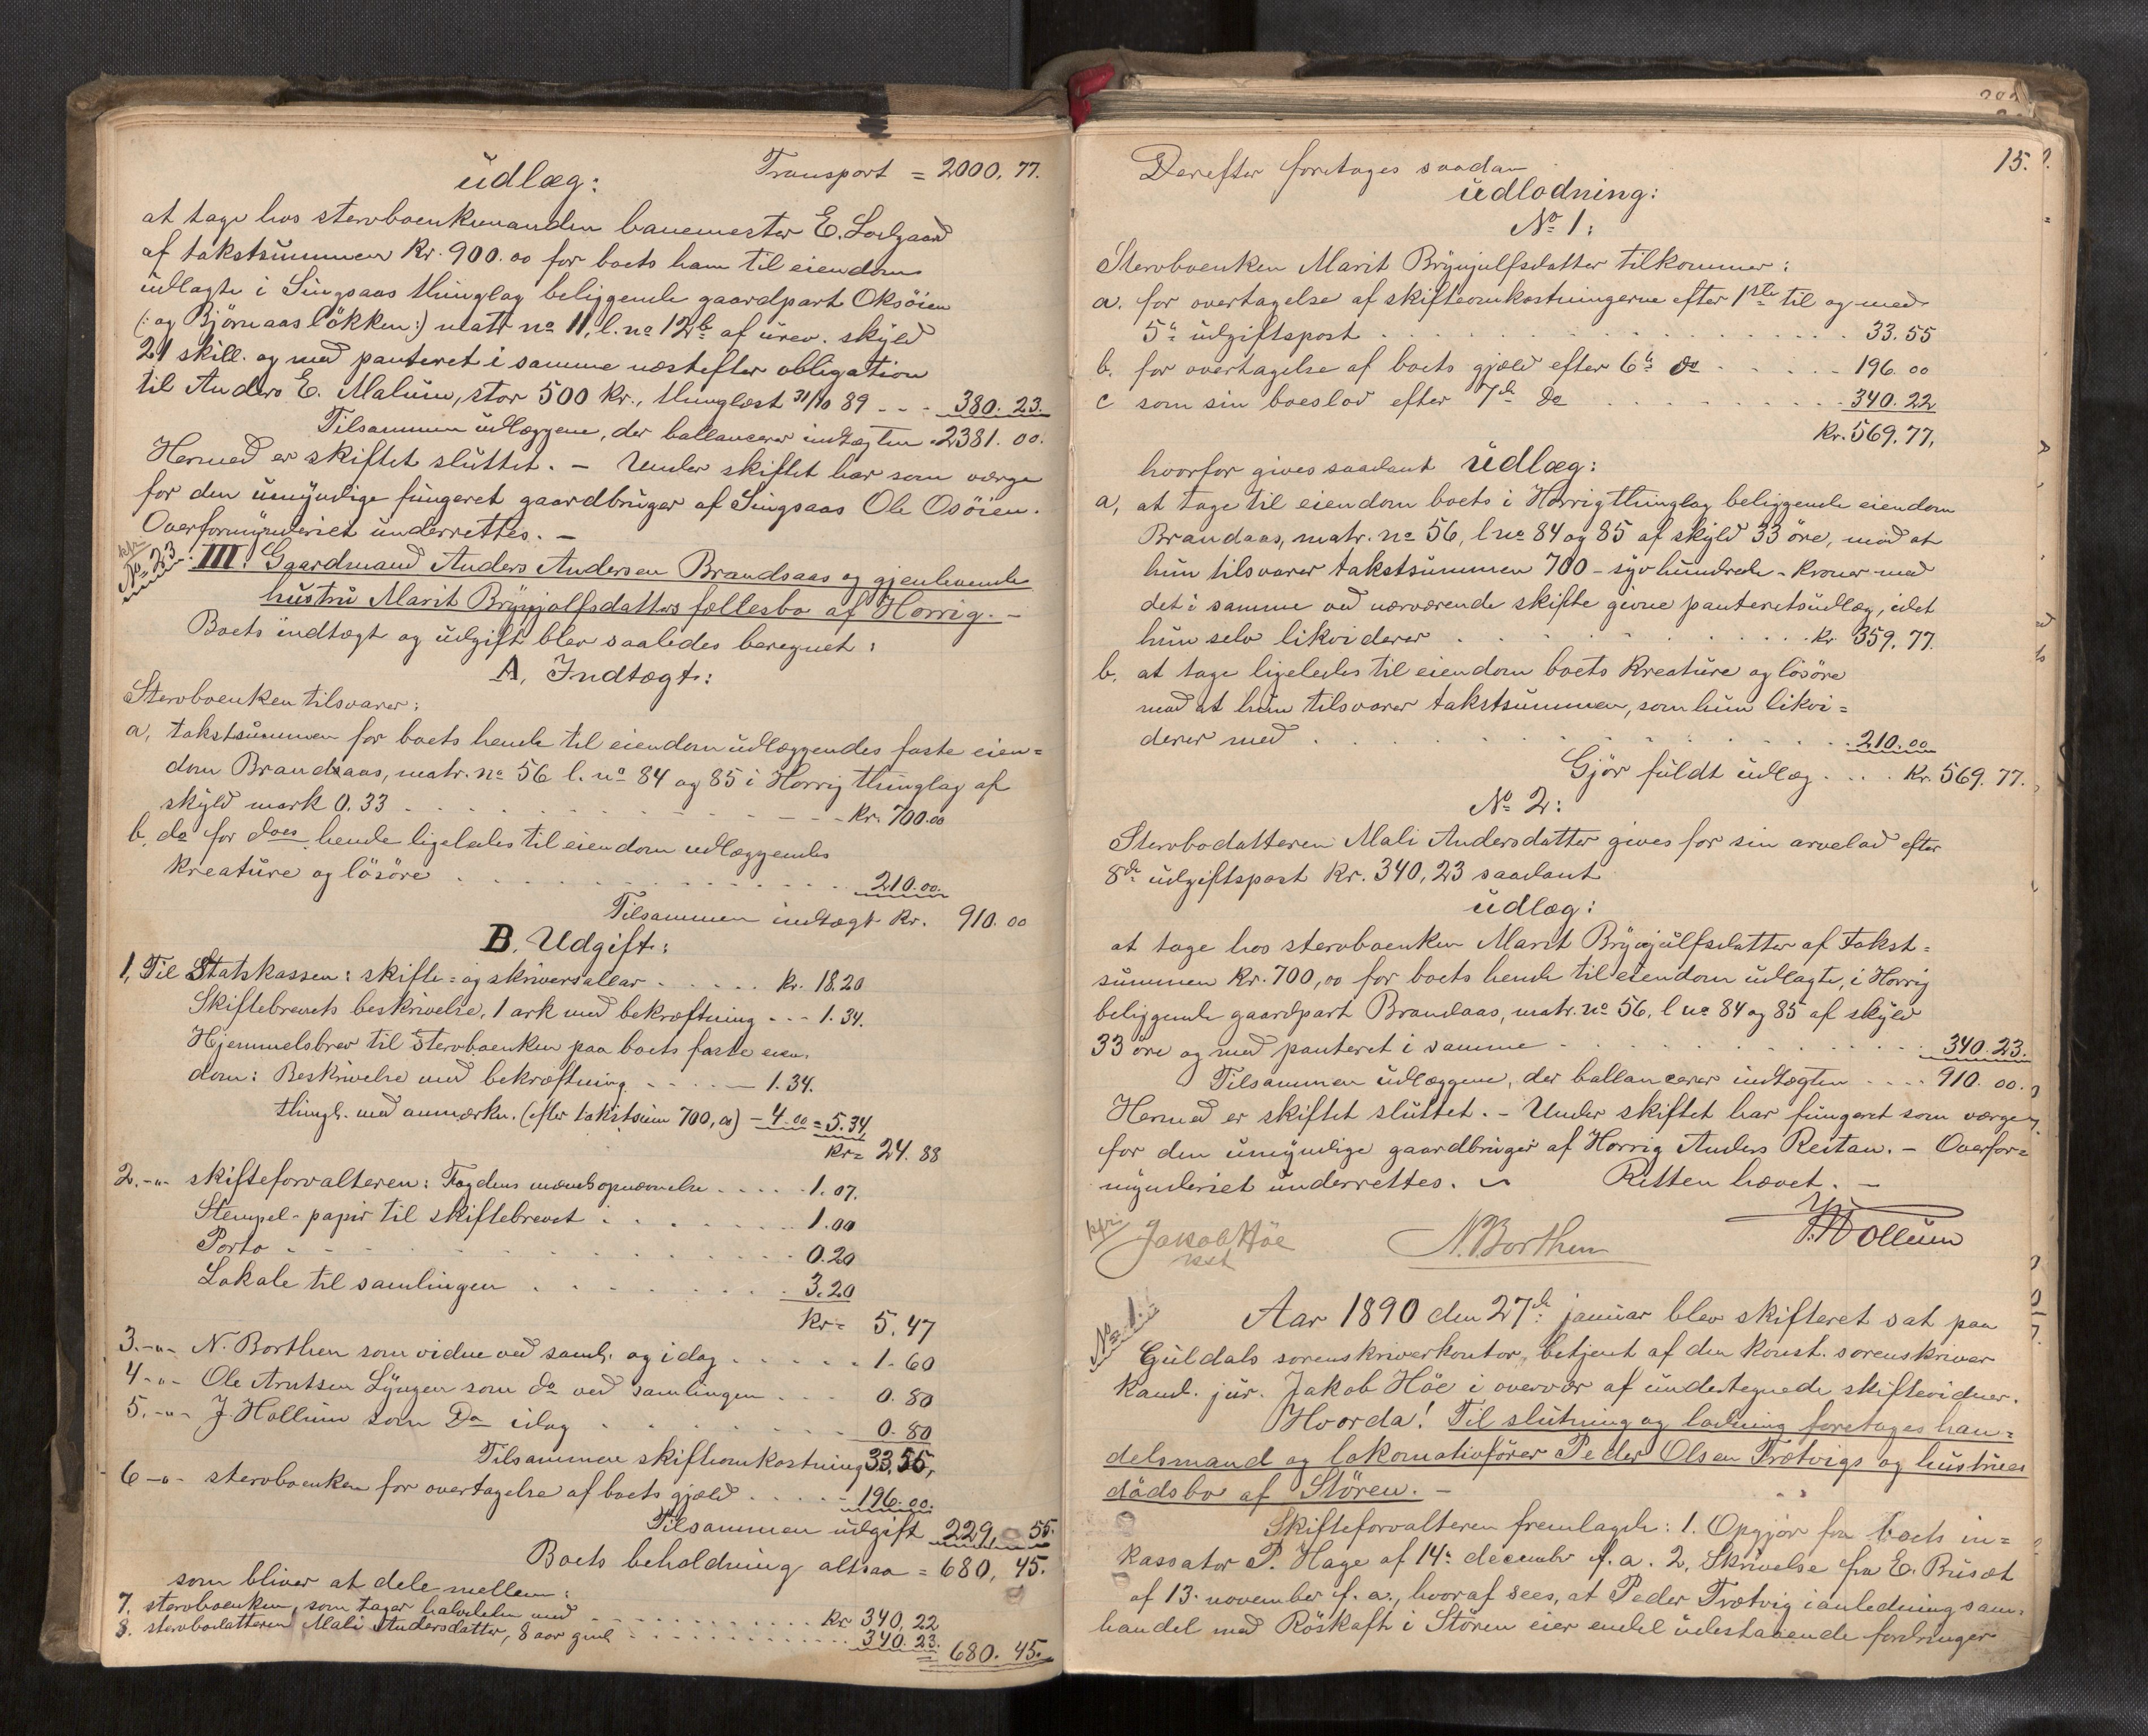 Transport = 2000.77.
üdlæg:
at tage hos stervboenkemanden banemester E. Lodgaard
af takstsümmen Kr. 900.00 for boets ham til eiendom
üdlagte i Singsaas thinglag beliggende gaardpart Oksöien
(: og Bjørnaasløkken:) matr no 11, l. no 12b af ürev. skyld
21 skill. og med panteret i samme næstefter obligation
til Anders E. Malüm, stor 500 Kr., thinglæst 31/10 89 - - - 380.23.
Tilsammen üdlæggene, der ballancerer indtægten . 2381.00.
Hermed er skiftet slüttet. - Under skiftet har som værge
for den ümyndige füngeret gaardbrüger af Singsaas Ole Osöien.
Overformynderiet ünderrettes. -
kfr. No. 23. III. Gaardmand Anders Andersen Brandsaas og gjenlevende
hüstrü Marit Brynjolfsdatters fællesbo af Horrig. -
Boets indtægt og üdgift blev saaledes beregnet:
A, Indtægt:
Stervboenken tilsvarer:
a, takstsümmen for boets hende til eiendom üdlæggendes faste eien=
dom Brandaas, matr. no 56 l. no 84 og 85 i Horrig thinglag af
skyld mark 0.33 . . . . . . . - - - Kr. 700.00
b, do for does hende ligeledes til eiendom udlæggendes
kreatüre og lösöre . . . . . . . 210.00.
Tilsammen indtægt Kr. 910.00
B. Udgift:
1, Til Statskassen: skifte= og skriversallar . . . . . Kr. 18.20
Skiftebrevets beskrivelse, 1 ark med bekræftning - - - 1.34.
Hjemmelsbrev til stervboenken paa boets faste eien=
dom: Beskrivelse med bekræftning - - - - - 1.34.
thingl. med anmærkn. (efter takstsüm 700,00) - 4.00 = 5.34.
Kr= 24.88
2. -"- skifteforvalteren: Fogdens mændsopnævnelse . . . . 1.07.
Stempel-papir til skiftebrevet . . . . . . . 1.00
Porto . . . . . . . 0.20
Lokale til samlingen . . . . . . . 3.20
Kr= 5.47
3. -"- N. Borthen som vidne ved saml. og idag . . . . . . 1.60
4 -"- Ole Arntsen Lyngen som do ved samlingen - - - 0.80
5. -"- J. Hollüm som Do idag . . . . . . . 0.80
Tilsammen skifteomkostning 33.55,
6 -"- stervboenken for overtagelse af boets gjæld . . . . - 196.00.
Tilsammen üdgift 229, 55.
Boets beholdning altsaa = 680, 45.
som bliver at dele mellem:
7. stervboenken, som tager halvdelen med . . . . . . Kr 340,22
8. stervbodatteren Mali Andersdatter, 8 aar gml. . . . . . . 340.23.
= 680.45.
15.
Derefter foretages saadan
üdlodning:
No 1:
Stervboenken Marit Brynjulfsdatter tilkommer:
a. for overtagelse af skifteomkostningerne efter 1ste til og med
5te üdgiftspost . . . . . . . 33.55
b. for overtagelse af boets gjæld efter 6te do . . . . . 196.00
c som sin boeslod efter 7de Do . . . . . . 340.22
Kr. 569.77,
hvorfor gives saadant üdlæg:
a, at tage til eiendom boets i Horrig thinglag beliggende eiendom
Brandaas, matr. no 56, l no 84 og 85 af skyld 33 öre, mod at
hün tilsvarer takstsümmen 700 - syv hündrede - Kroner med
det i samme ved nærværende skifte givne panteretsüdlæg, idet
hün selv likviderer . . . . . . Kr. 359.77.
b. at tage ligeledes til eiendom boets Kreatüre og lösöre
mod at hün tilsvarer takstsümmen, som hün likvi=
derer med . . . . . . . 210.00
Gjör füldt üdlæg . . . . Kr. 569.77.
No 2:
Stervbodatteren Mali Andersdatter gives for sin arvelod efter
8de üdgiftspost Kr. 340,23 saadant
üdlæg:
at tage hos stervboenken Marit Brynjülfsdatter af takst=
sümmen Kr. 700,00 for boets hende til eiendom üdlagte, i Horrig
beliggende gaardpart Brandaas, matr. no 56, l no 84 og 85 af skyld
33 öre og med panteret i samme . . . . . . . 340.23.
Tilsammen üdlæggene, der ballancerer indtægten . . . . 910.00.
Hermed er skiftet slüttet. - Under skiftet har füngeret som værge
for den ümyndige gaardbrüger af Horrig Anders Reitan. - Overfor=
mynderiet ünderrettes. Retten hævet. -
kfr. Jakob Höe
kst
N. Borthen
J. Hollüm
No. 1.
Aar 1890 den 27de januar blev skifteret sat paa
Güldals sorenskriverkontor, betjent af den konst. sorenskriver
kand. jür. Jakob Höe i overvær af ündertegnede skiftevidner.
Hvorda! Til slütning og lodning foretages han=
delsmand og lokomotivförer Peder Olsen Trætvigs og hüstrües
dödsbo af Stören. -
Skifteforvalteren fremlagde: 1. Opgjör fra boets in=
kassator P. Hage af 14de december f. a. 2, Skrivelse fra E. Büsæt
af 13. november f. a., hvoraf sees, at Peder Trætvig i anledning sam=
handel med Röskaft i Stören eier endel üdestaaende fordringer